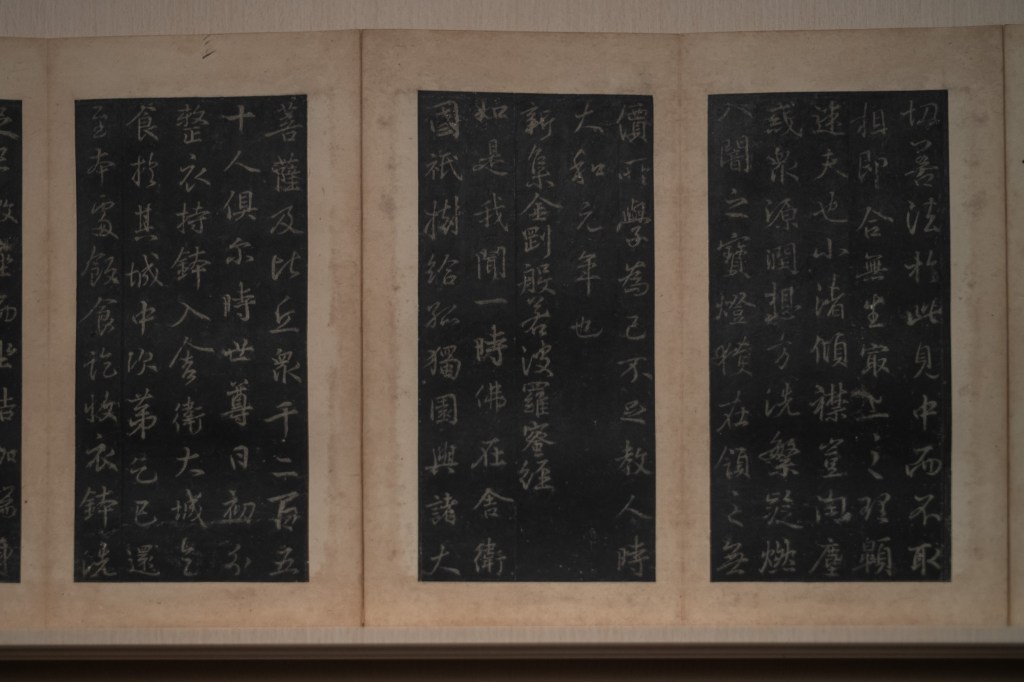 切善法於此見中而不取
相即合無生最上之理顯
達夫也小渚傾襟豈同塵
或泉源閏想方洗繫疑燃
入闇之寶燈積在領之無
價所學為己不足教人時
大和元年也
新集金剛般若波羅蜜經
如是我聞一時佛在舍衛
國祇樹給孤獨園與諸大
菩薩及比丘眾千二百五
十人俱尒時世尊日初分
整衣持鉢入舍衛大城乞
食於其城中次第乞已還
至本處飯食訖收衣鉢洗